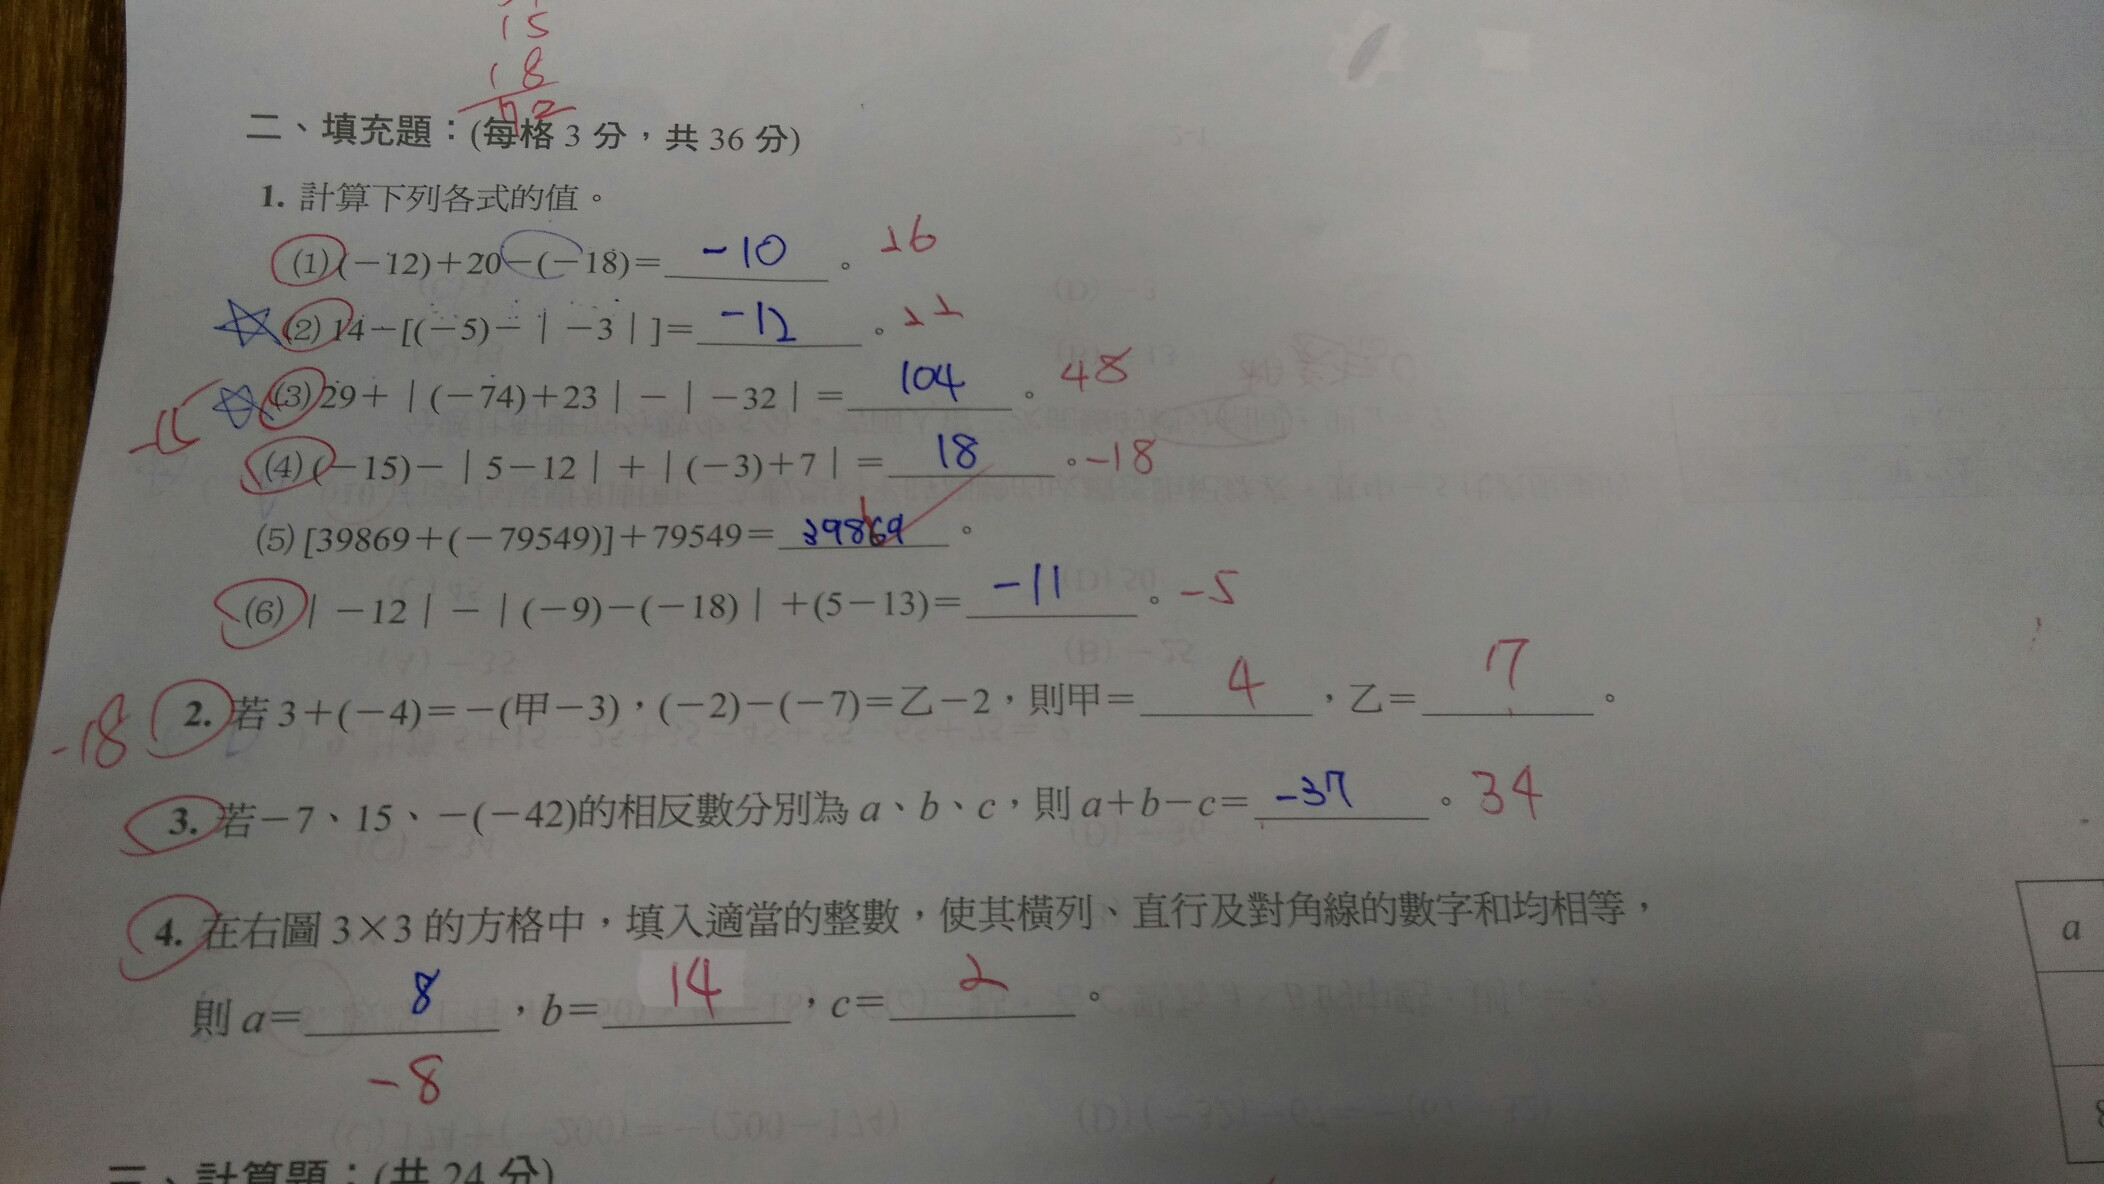 15
18
72
二、填充題：(每格 3 分，共 36 分)
1. 計算下列各式的值。
(1) (－12)＋20－(－18)＝ -10 。 26
(2) 14－[(－5)－｜－3｜]＝ -12 。 22
(3) 29＋｜(－74)＋23｜－｜－32｜＝ 104 。 48
-15
(4) (－15)－｜5－12｜＋｜(－3)＋7｜＝ 18 。 -18
(5) [39869＋(－79549)]＋79549＝ 39869 。
(6)｜－12｜－｜(－9)－(－18)｜＋(5－13)＝ -11 。 -5
-18
2. 若 3＋(－4)＝－(甲－3)，(－2)－(－7)＝乙－2，則甲＝ 4 ，乙＝ 7 。
3. 若－7、15、－(－42)的相反數分別為 a、b、c，則 a＋b－c＝ -37 。 34
4. 在右圖 3×3 的方格中，填入適當的整數，使其橫列、直行及對角線的數字和均相等，
則 a＝ 8 ，b＝ 14 ，c＝ 2 。
-8
a
三、計算題：(共 24 分)